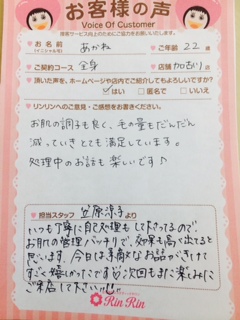 お客様の声
Voice Of Customer
接客サービス向上のためにご協力をお願いします。
お名前
(イニシャル可)
あかね
ご年齢 22 歳
ご契約コース 全身
店舗 加古川 店
頂いた声を、ホームページや店内でご紹介してもよろしいですか?
はい 匿名で いいえ
リンリンへのご意見・ご感想をお書きください。
お肌の調子も良く、毛の量もだんだん
減っていきとても満足しています。
処理中のお話も楽しいです♪
担当スタッフ 笠原涼子 より
いつも丁寧に自己処理もして下さってるので、
お肌の管理バッチリで、効果も高く出てると
思います。今日は素敵なお話がきけて
すごく嬉しかったです♡次回もまた楽しみに
ご来店して下さい!!
Rin Rin